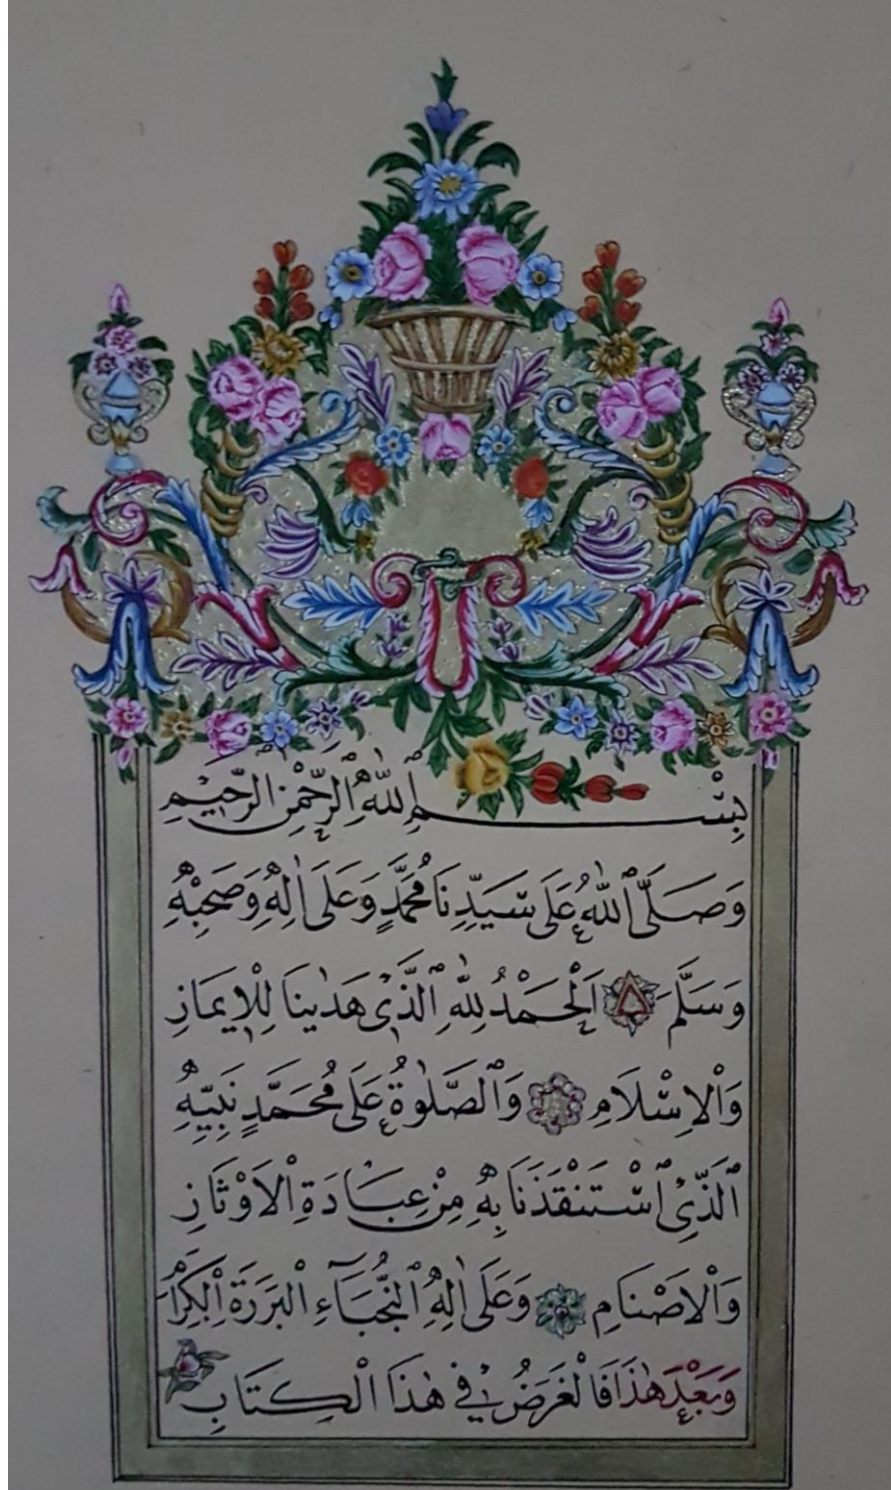 بِسْمِ ٱللّٰهِ ٱلرَّحْمٰنِ ٱلرَّحِيمِ
وَصَلَّى ٱللّٰهُ عَلَى سَيِّدِنَا مُحَمَّدٍ وَعَلَى اٰلِهٖ وَصَحْبِهٖ
وَسَلَّمَ اَلْحَمْدُ لِلّٰهِ ٱلَّذِى هَدٰينَا لِلْاِيمَانِ
وَالْاِسْلَامِ وَٱلصَّلٰوةُ عَلَى مُحَمَّدٍ نَبِيِّهِ
ٱلَّذِى ٱسْتَنْقَذَنَا بِهٖ مِنْ عِبَادَةِ ٱلْاَوْثَانِ
وَالْاَصْنَامِ وَعَلَى اٰلِهِ ٱلنُّجَبَآءِ ٱلْبَرَرَةِ ٱلْكِرَامِ
وَبَعْدَ هٰذَا فَالْغَرَضُ فِى هٰذَا ٱلْكِتَابِ